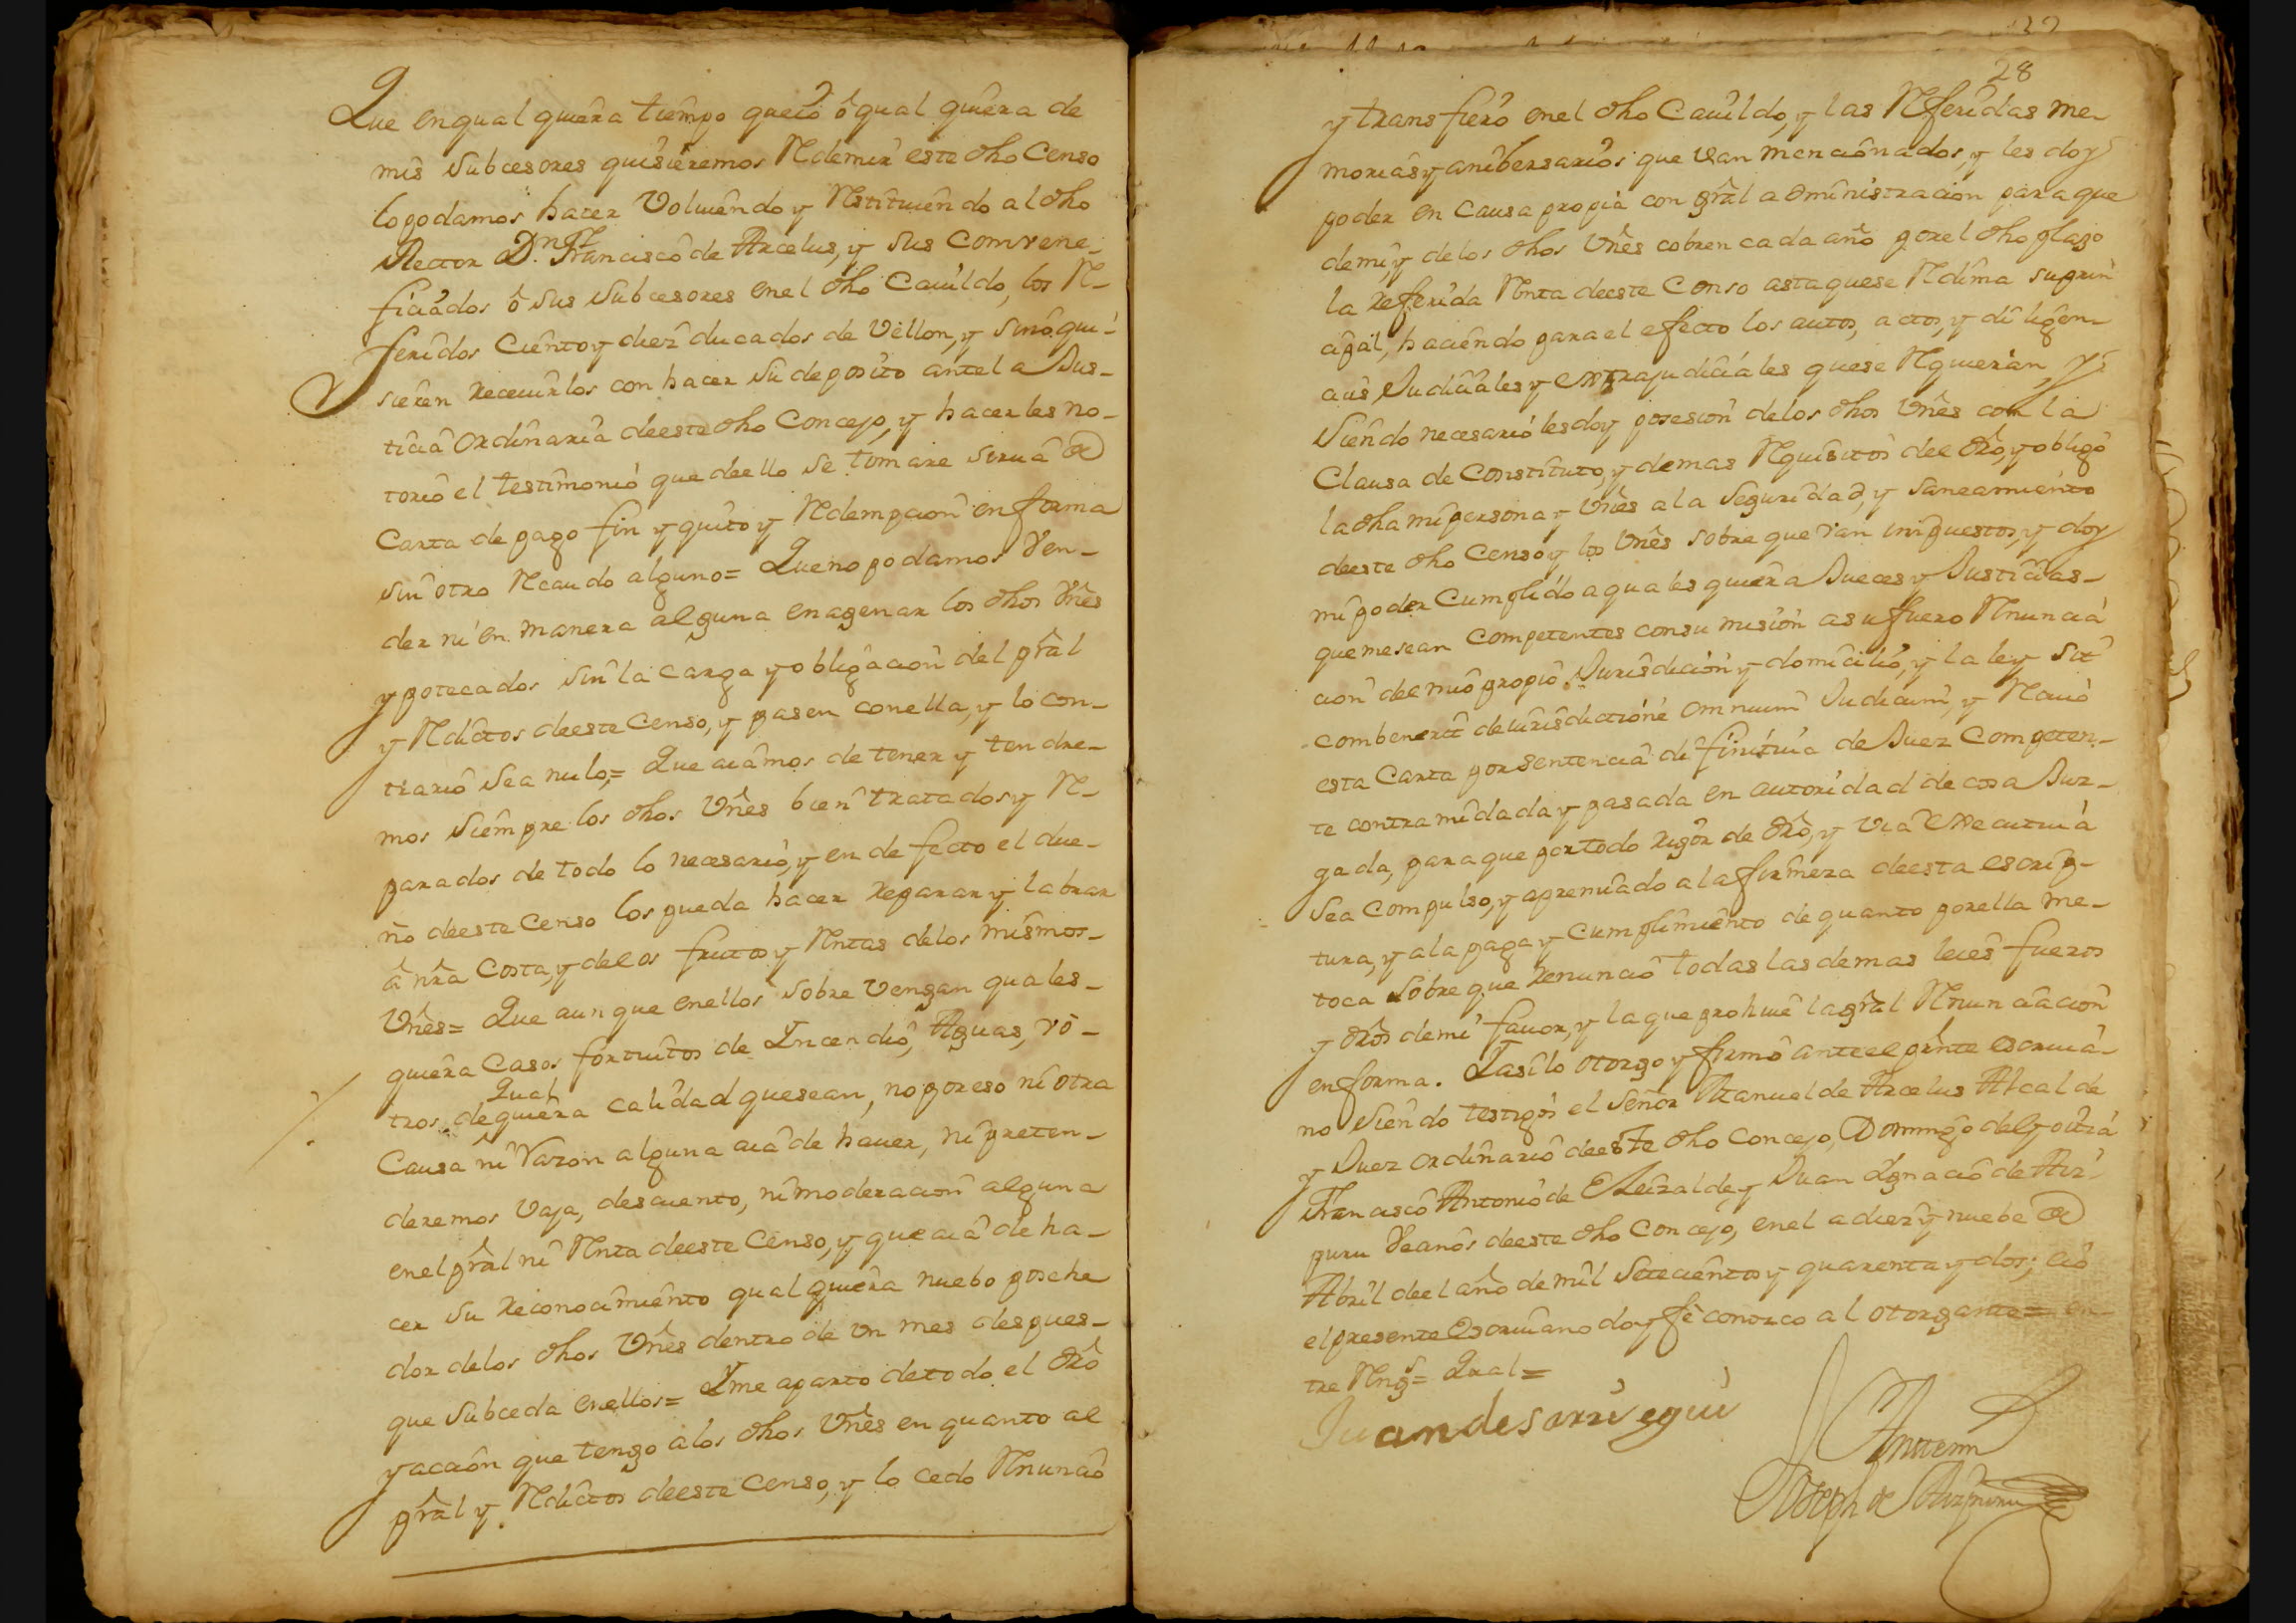 Que en qual quiera tiempo que io o qual quiera de
mis subcesores quisieremos Redemir este dho Censo
lo podamos hacer Volviendo y Restituiendo al dho
Rector Dn. Francisco de Arcelus, y sus comvene-
ficiados o sus subcesores en el dho Cavildo, los Re-
feridos Ciento y diez ducados de Vellon, y sino qui-
sieren recevirlos con hacer su deposito ante la Jus-
ticia ordinaria de este dho Concejo, y hacerles no-
torio el testimonio que de ello se tomare sirua de
Carta de pago fin y quito y Redempcion en forma
sin otro Recaudo alguno= Que no podamos Ven-
der ni en manera alguna enagenar los dhos Vnes
ypotecados sin la carga y obligacion del pral
y Reditos de este Censo, y pasen con ella, y lo con-
trario sea nulo,= Que aiamos de tener y tendre-
mos siempre los dhos Vnes bien tratados y Re-
parados de todo lo necesario, y en defecto el due-
ño de este Censo los pueda hacer reparar y labrar
a nra costa, y de los frutos y Rentas de los mismos-
Vnes= Que aunque en ellos sobre vengan quales-
quiera Casos fortuitos de Incendio, Aguas, rò-
Qual
tros, de quiera calidad que sean, no por eso ni otra
Causa ni Razon alguna aia de haver, ni preten-
deremos Vaja, descuento, ni moderacion alguna
en el pral ni Renta de este Censo, y que aia de ha-
cer su reconocimiento qualquiera nuebo poshe
dor de los dhos Vnes dentro de un mes despues-
que subceda en ellos= Yme aparto de todo el dro
y accion que tengo a los dhos Vnes en quanto al
pral y Reditos de este Censo, y lo cedo Renuncio
28
y transfiero en el dho Cavildo, y las Referidas me-
morias y anibersarios que van mencionados, y les doy
poder en causa propia con gral administracion para que
de mi, y de los dhos Vnes cobren cada año por el dho plazo
la referida Renta de este Censo asta que se Redima su prin
cipal, haciendo para el efecto los autos, actos, y diligen-
cias Judiciales y extrajudiciales que se Requieran, y
siendo necesario les doy posesion de los dhos Vnes con la
Clausa de Constituto, y demas Requisitos de el dro, y obligo
la dha mi persona y Vnes a la seguridad, y saneamiento
de este dho Censo y los Vnes sobre que van inpuestos, y doy
mi poder Cumplido a quales quiera Jueces y Justicias-
que me sean competentes con sumision a su fuero Renuncia
cion de el mio propio Jurisdicion y domicilio, y la ley sit
combenerit de iurisdictione omnium Judicum, y Recivo
esta Carta por sentencia difinitiva de Juez Competen-
te contra mi dada y pasada en autoridad de cosa Juz-
gada, para que por todo rigor de dro, y via executiva
sea compulso, y apremiado a la firmeza de esta escrip-
tura, y a la paga y cumplimiento de quanto por ella me-
toca sobre que renuncio todas las demas leies fueros
y dros de mi favor, y la que prohive la gral Renunciacion
en forma. Y asi lo otorgo y firmo ante el prnte escriva-
no siendo testigos el señor Manuel de Arcelus Alcalde
y Juez ordinario de este dho Concejo, Domingo de
Francisco Antonio de Elizalde, y Juan Ignacio de Aiz-
puru Veanos de este dho Concejo, en el a diez y nuebe de
Abril de el año de mil setecientos y quarenta y dos; e io
el presente escrivano doy fe conozco al otorgante= en-
tre Rengs= Qual=
Juan de sarriegui
Ante mi
Joseph de Aizpuru